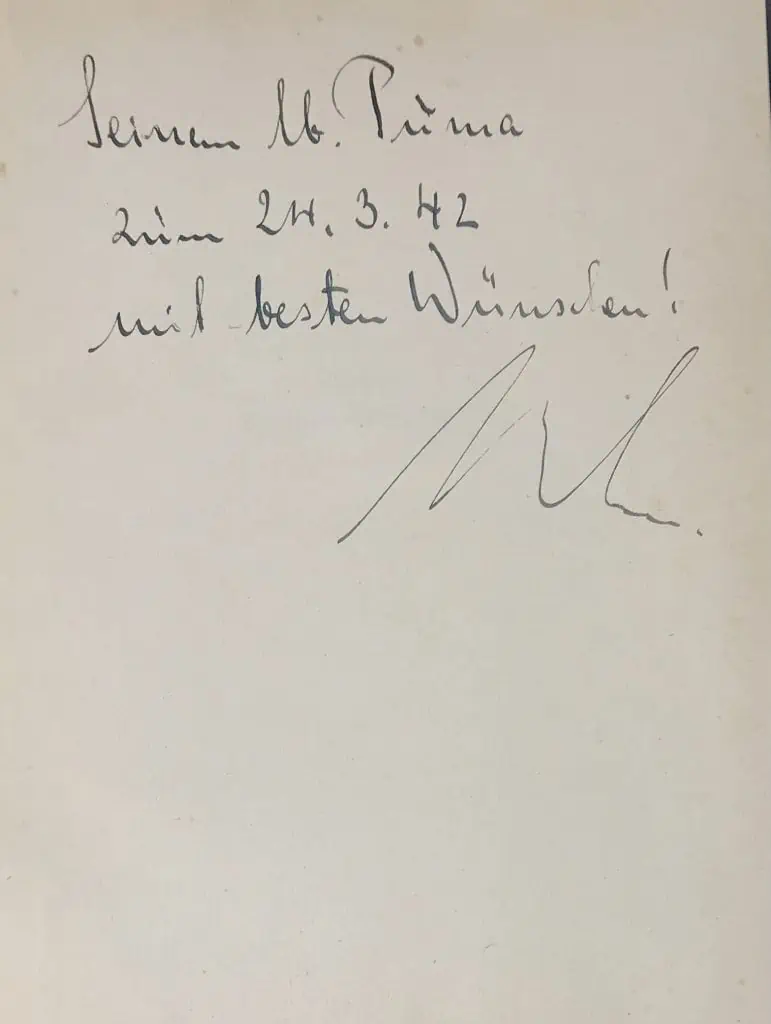 Seinem lb. Puma
zum 24. 3. 42
mit besten Wünschen!